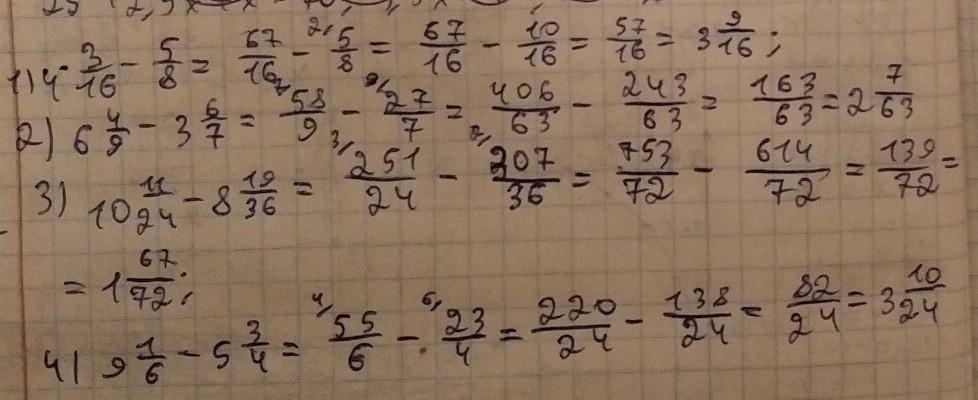 1) 4 3/16 - 5/8 = 67/16 - ²⁄ 5/8 = 67/16 - 10/16 = 57/16 = 3 9/16;
2) 6 4/9 - 3 6/7 = ⁷⁄ 58/9 - ⁹⁄ 27/7 = 406/63 - 243/63 = 163/63 = 2 7/63
3) 10 11/24 - 8 19/36 = ³⁄ 251/24 - ²⁄ 207/36 = 753/72 - 614/72 = 139/72 =
= 1 67/72;
4) 9 1/6 - 5 3/4 = ⁴⁄ 55/6 - ⁶⁄ 23/4 = 220/24 - 138/24 = 82/24 = 3 10/24